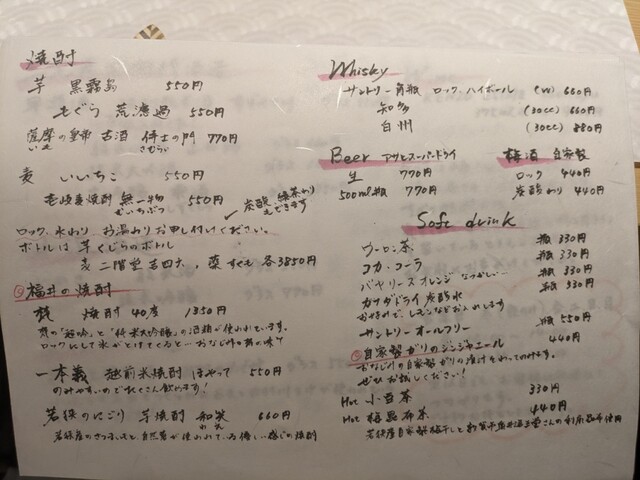 焼酎
芋 黒霧島 550円
もぐら 荒濾過 550円
薩摩の 古酒 侍士の門 770円
さむらい
麦 いいちこ 550円
壱岐麦焼酎 無一物 550円
むいちぶつ
炭酸、緑茶わり
もできます
ロック、水わり、お湯わりお申し付けください。
ボトルは 芋くじらのボトル
麦 二階堂吉四六、 各3850円
福井の焼酎
梵 焼酎 40度 1350円
梵の「超吟」と「純米大吟醸」の酒粕が使われています。
ロックにして氷がとけてくると…
一本義 越前米焼酎 ほやって 550円
のみやすいのでたくさん飲めます!
若狭のにごり 芋焼酎 和笑 660円
わえ
若狭産のさつまいもと、自然薯が使われている優しい感じの焼酎
Whisky
サントリー角瓶 ロック、ハイボール (W) 660円
知多 (30cc) 660円
白州 (30cc) 880円
Beer アサヒスーパードライ
生 770円
500ml瓶 770円
梅酒 自家製
ロック 440円
炭酸わり 440円
Soft drink
ウーロン茶 瓶 330円
コカ・コーラ 瓶 330円
バヤリースオレンジ なつかしい… 瓶 330円
カナダドライ炭酸水 瓶 330円
レモンなどお入れします
サントリーオールフリー 瓶 550円
自家製ガリのジンジャエール 440円
おなじみの自家製ガリの漬け汁をわってのみます。
ぜひお試しください!
Hot 小豆茶 330円
Hot 梅昆布茶 440円
若狭産自家製梅干しと敦賀市奥井海生堂さんの利尻昆布使用